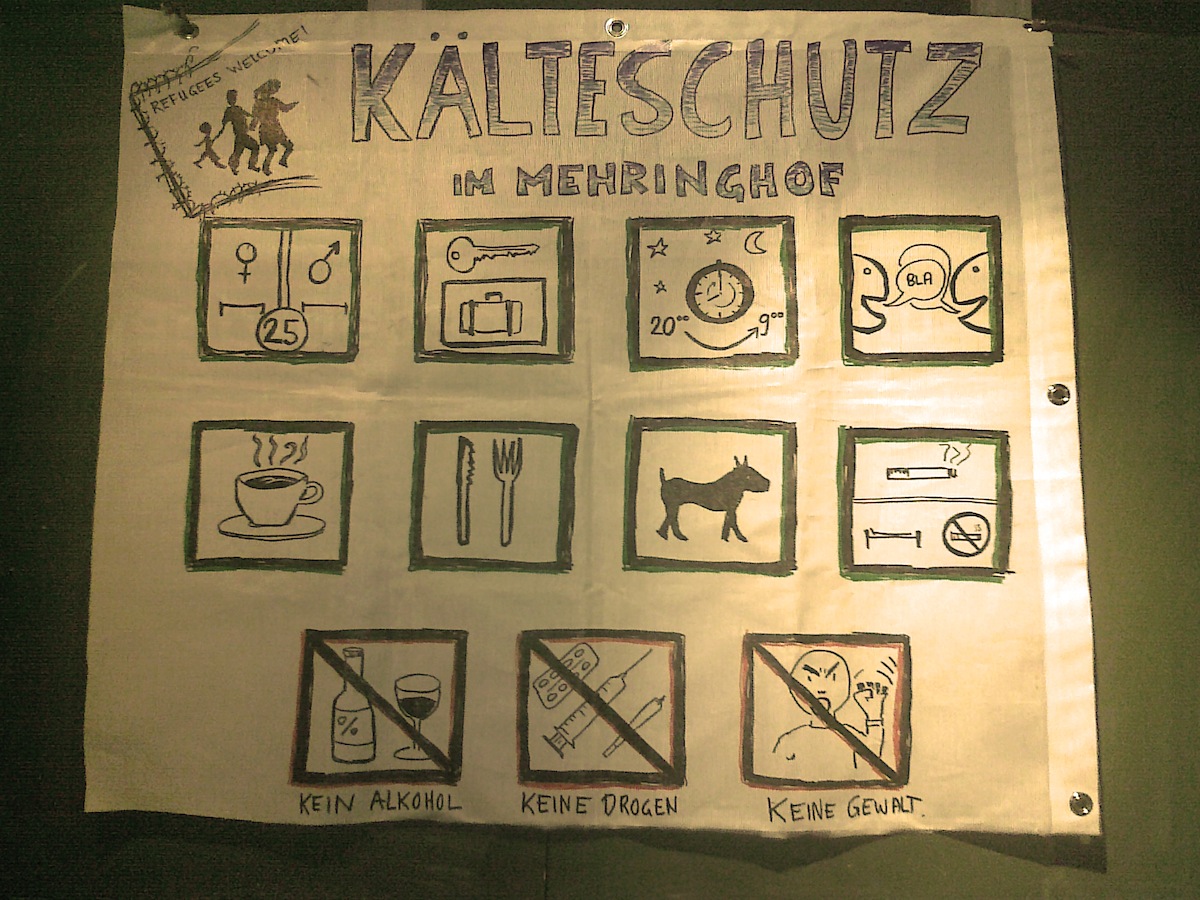 REFUGEES WELCOME!
KÄLTESCHUTZ
IM MEHRINGHOF
25
20°° 9°°
BLA
%
KEIN ALKOHOL
KEINE DROGEN
KEINE GEWALT.